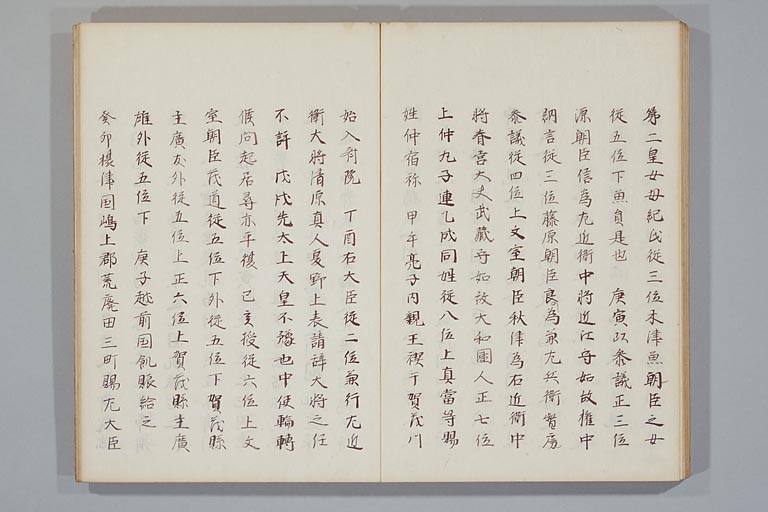 第二皇女母紀氏従三位木津魚朝臣之女
従五位下魚員是也　庚寅以参議正三位
源朝臣信為左近衛中将近江守如故権中
納言従三位藤原朝臣良為兼左兵衛督房
参議従四位上文室朝臣秋津為右近衛中
将春宮大夫武蔵守如故大和國人正七位
上仲丸子連乙成同姓従八位上真當等賜
姓仲宿祢　甲午亮子内親王禊于賀茂川
始入斎院　丁酉右大臣従二位兼行左近
衛大将清原真人夏野上表請辞大将之任
不許　戊戌先太上天皇不豫也中使輪轉
候問起居尋亦平復　己亥授従六位上文
室朝臣茂道従五位下外従五位下賀茂縣
主廣友外従五位上正六位上賀茂縣主廣
雄外従五位下　庚子越前国飢賑給之
癸卯摂津国嶋上郡荒廃田三町賜左大臣